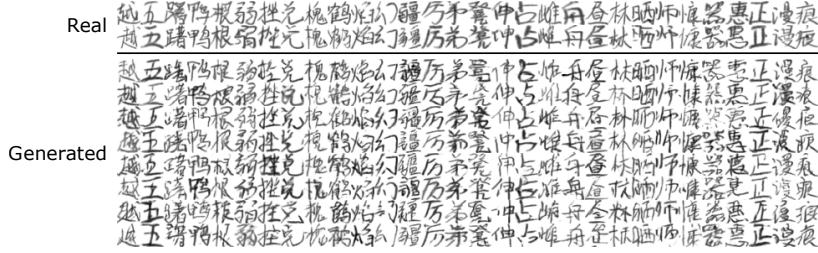 Real
越五躇鸭根弱挫兑槐鹤焰幻疆厉弟凳仲占雌舟昼林晒师慷器惠正漫痕
越五躇鸭根弱挫兑槐鹤焰幻疆厉弟凳仲占雌舟昼林晒师慷器惠正漫痕
Generated
越五躇鸭根弱挫兑槐鹤焰幻疆厉弟凳仲占雌舟昼林晒师慷器惠正漫痕
越五躇鸭根弱挫兑槐鹤焰幻疆厉弟凳仲占雌舟昼林晒师慷器惠正漫痕
越五躇鸭根弱挫兑槐鹤焰幻疆厉弟凳仲占雌舟昼林晒师慷器惠正漫痕
越五躇鸭根弱挫兑槐鹤焰幻疆厉弟凳仲占雌舟昼林晒师慷器惠正漫痕
越五躇鸭根弱挫兑槐鹤焰幻疆厉弟凳仲占雌舟昼林晒师慷器惠正漫痕
越五躇鸭根弱挫兑槐鹤焰幻疆厉弟凳仲占雌舟昼林晒师慷器惠正漫痕
越五躇鸭根弱挫兑槐鹤焰幻疆厉弟凳仲占雌舟昼林晒师慷器惠正漫痕
越五躇鸭根弱挫兑槐鹤焰幻疆厉弟凳仲占雌舟昼林晒师慷器惠正漫痕